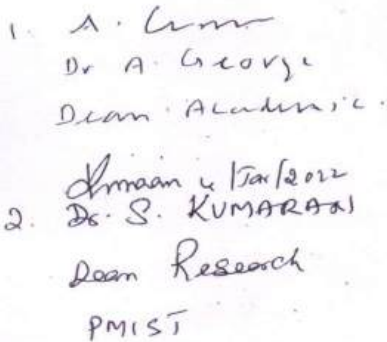 1. A.
Dr A. George
Dean Academic.
4/Jan/2022
2. Dr. S. KUMARAN
Dean Research
PMIST